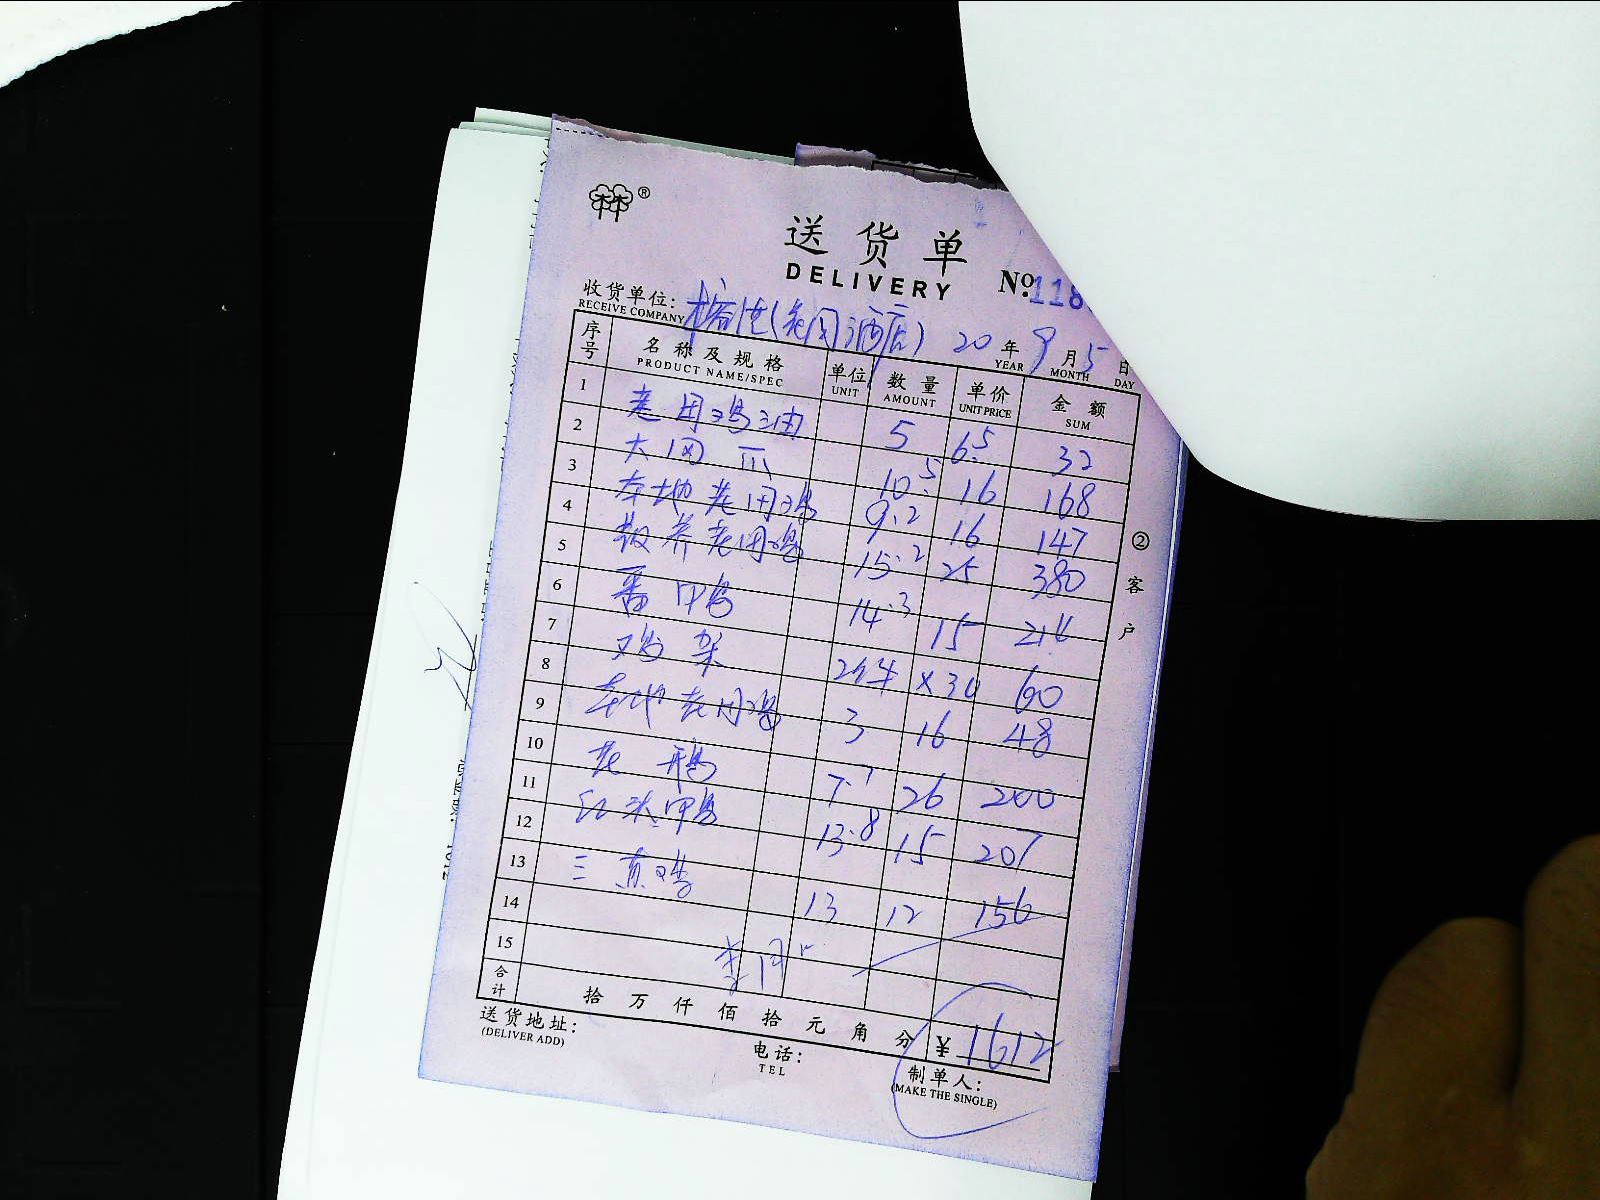 林林®
送货单
DELIVERY No.118
收货单位: 榕佳(老闰酒店) 20 年 9 月 5 日
RECEIVE COMPANY YEAR MONTH DAY
序号 名称及规格 单位 数量 单价 金额
PRODUCT NAME/SPEC UNIT AMOUNT UNIT PRICE SUM
1 鸡油 5 6.5 32
2 大 爪 10.5 16 168
3 本地老 鸡 9.2 16 147
4 养老 鸡 15.2 25 380
5 番鸭 14.3 15 214
6
7 鸡架 2件 x30 60
8 本地老 鸡 3 16 48
9
10 老鹅 7.7 26 200
11 红头鸭 13.8 15 207
12
13 三黄鸡 13 12 156
14
15
合计 拾万仟佰拾元角分 ¥1612
送货地址: 电话: 制单人:
(DELIVER ADD) TEL (MAKE THE SINGLE)
②客户